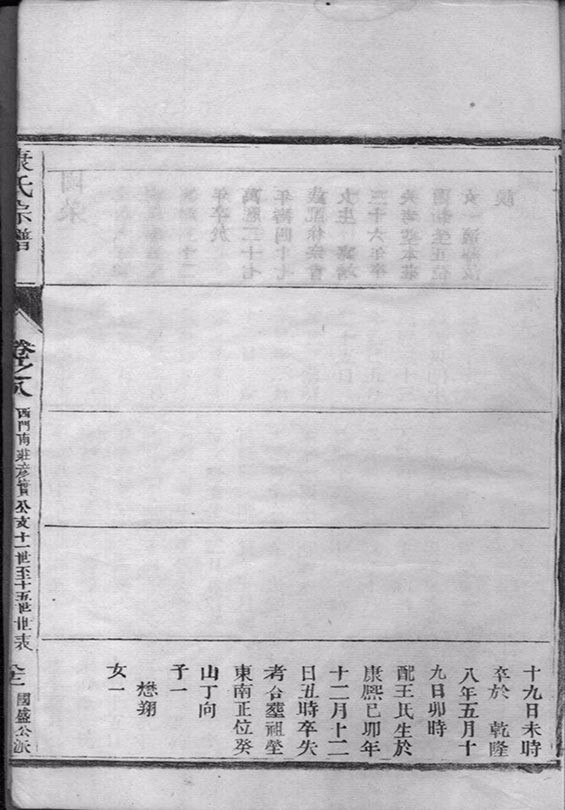 十九日未時
卒於 乾隆
八年五月十
九日卯時
配王氏生於
康熙己卯年
十二月十二
日丑時卒失
考合塟祖塋
東南正位癸
山丁向
子一
懋翔
女一
康氏宗譜
卷之八
西門南莊彥實公支十一世至十五世世表
國盛公派